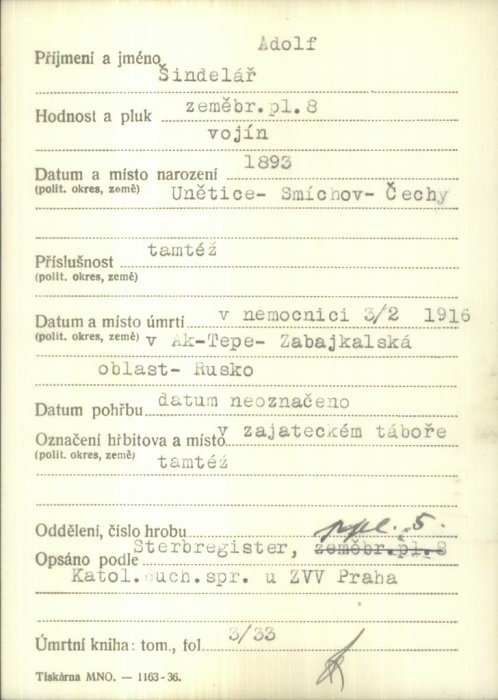 Adolf
Příjmení a jméno
Šindelář
Hodnost a pluk zeměbr.pl.8
vojín
Datum a místo narození 1893
(polit. okres, země) Unětice- Smíchov- Čechy
Příslušnost tamtéž
(polit. okres, země)
Datum a místo úmrtí v nemocnici 3/2 1916
(polit. okres, země) v Ak-Tepe- Zabajkalská
oblast- Rusko
Datum pohřbu datum neoznačeno
Označení hřbitova a místo v zajateckém táboře
(polit. okres, země) tamtéž
Oddělení, číslo hrobu ppl. 5.
Opsáno podle Sterbregister, zeměbr.pl.8
Katol.duch.spr. u ZVV Praha
Úmrtní kniha: tom., fol. 3/33
Tiskárna MNO. — 1163-36.